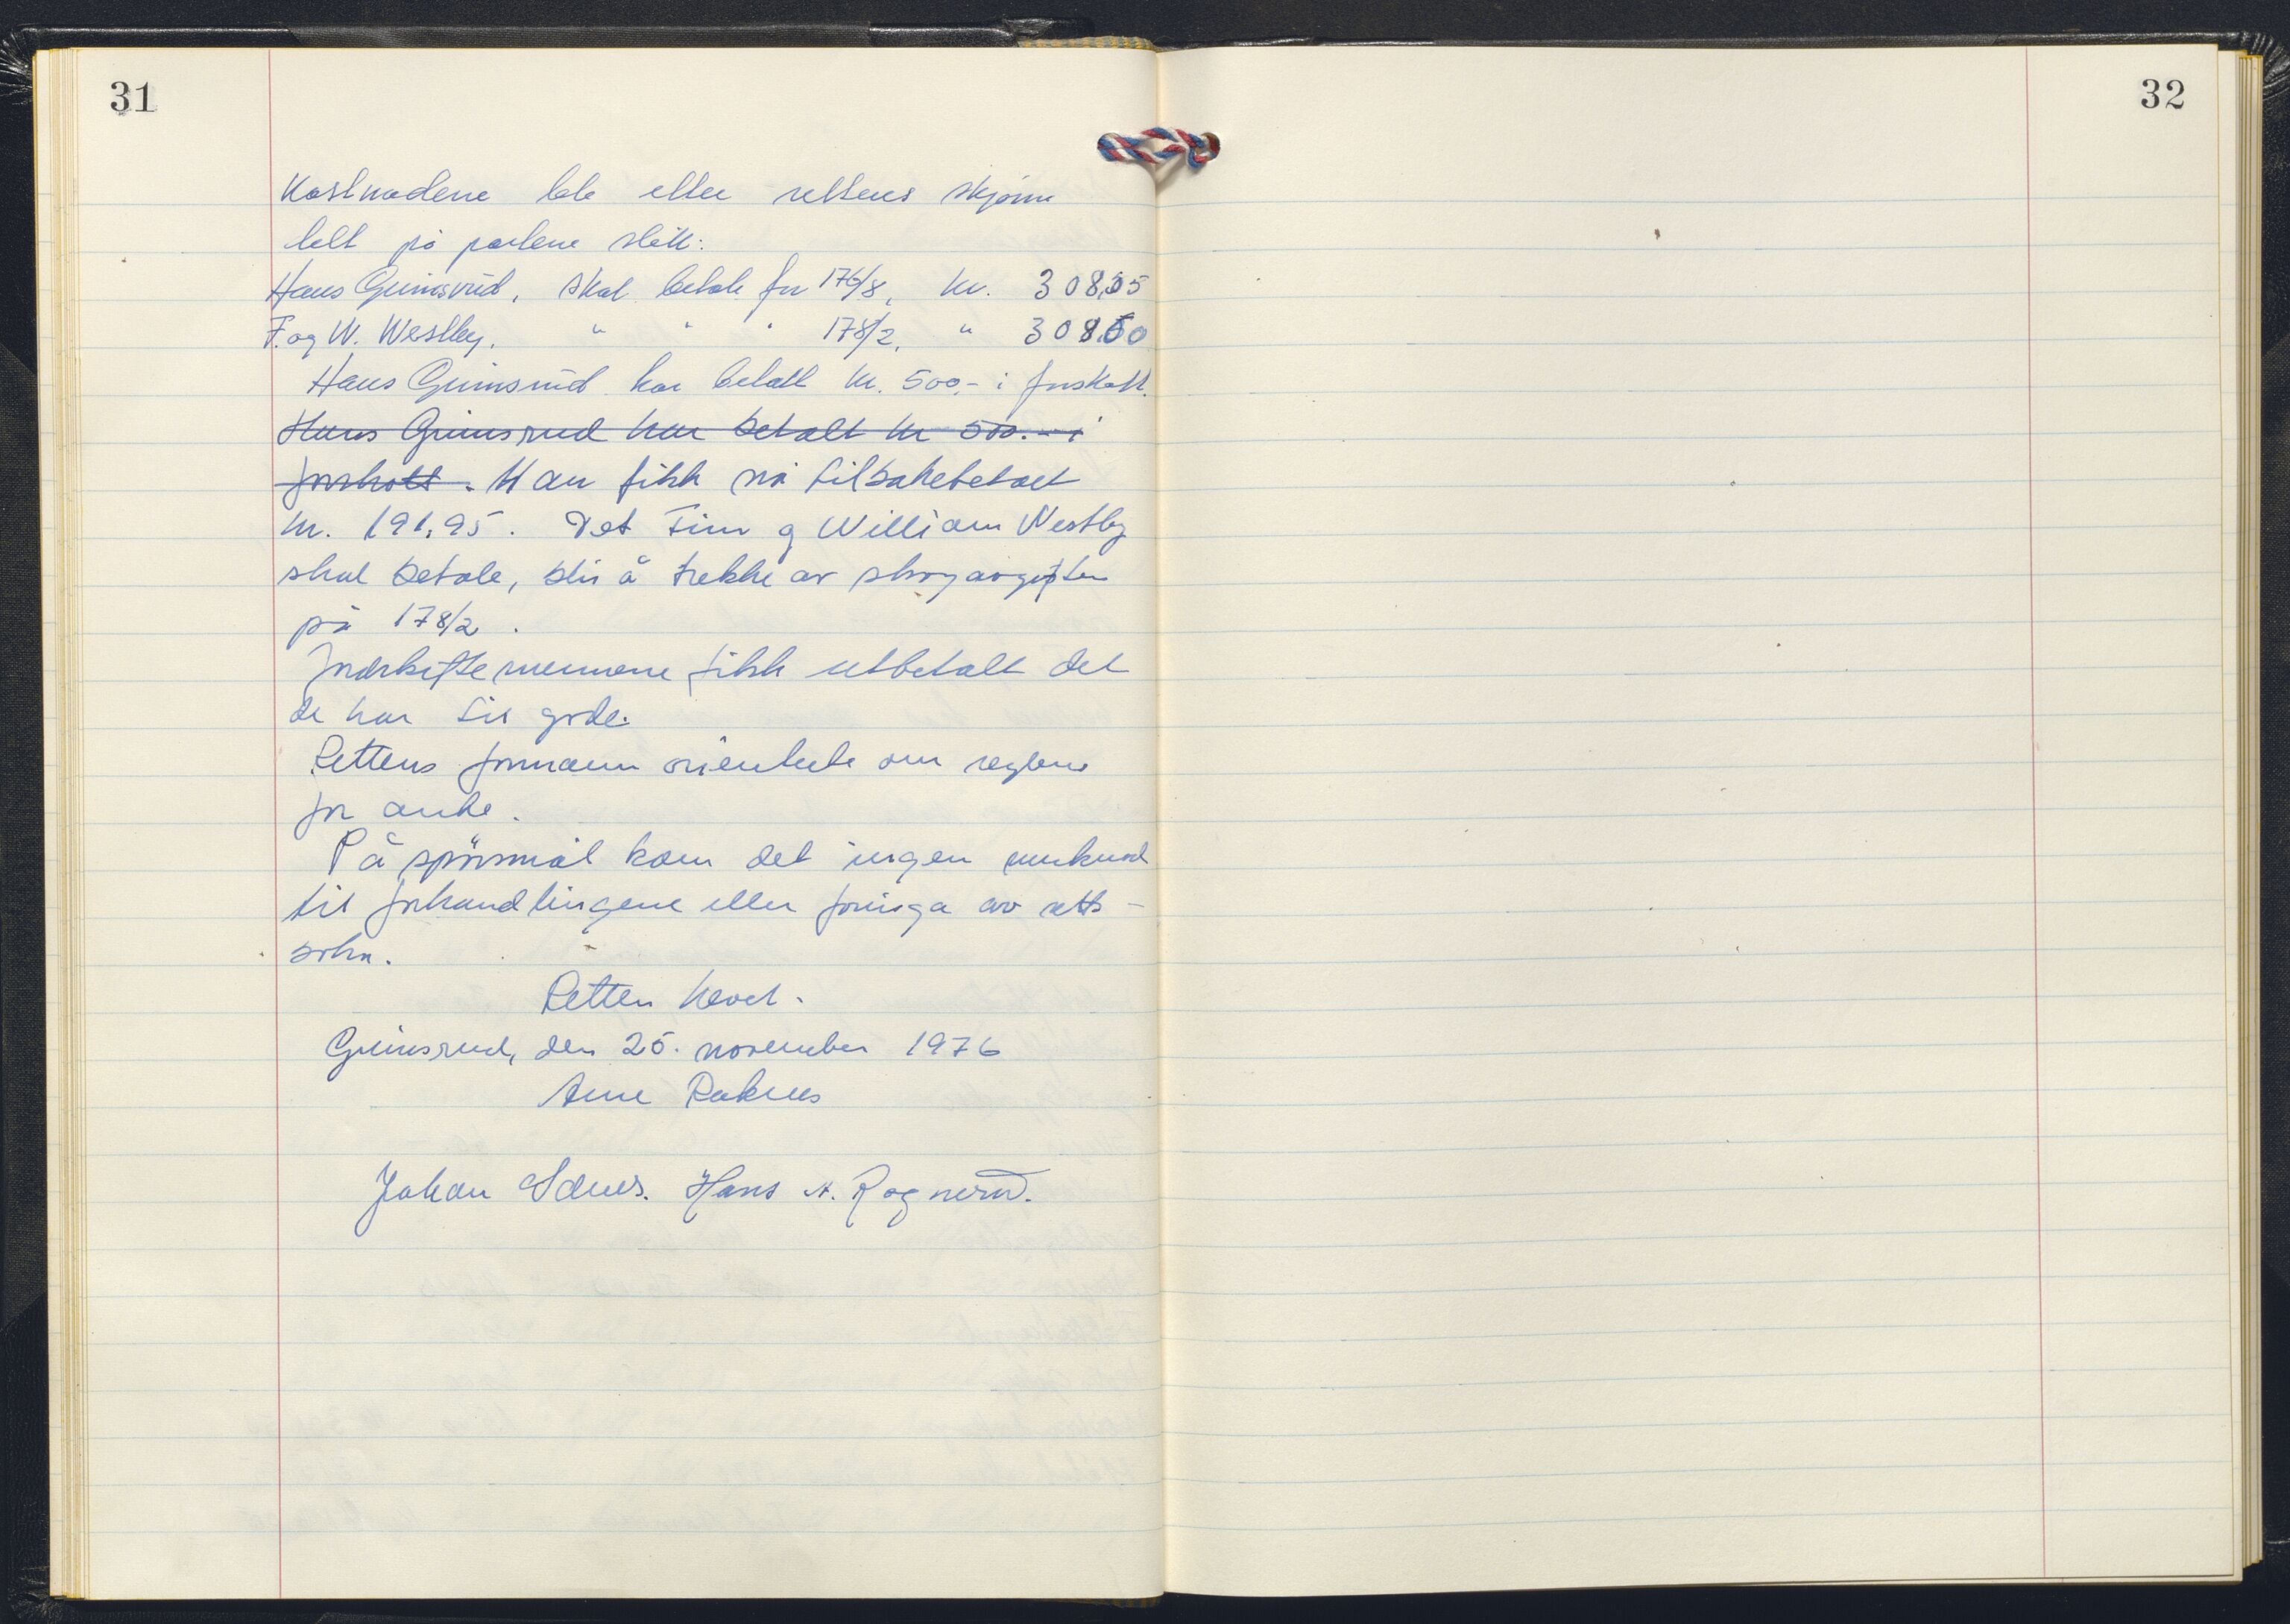 31
32
Kostnadene ble etter rettens skjønn
delt på partene slik:
Hans Grimsrud, skal betale for 176/8, kr. 308,05
F. og W. Westby, " " " 178/2, " 308,00
Hans Grimsrud har betalt kr. 500,- i forskott.
Hans Grimsrud har betalt kr 500.- i
forskott. Han fikk nå tilbakebetalt
kr. 191,95. Det Finn og William Westby
skal betale, blir å trekke av skogavgiften
på 178/2.
Jordskiftemennene fikk utbetalt det
de har til gode.
Rettens formann orienterte om reglene
for anke.
På spørsmål kom det ingen merknad
til forhandlingene eller føringa av retts-
boka.
Retten hevet.
Grimsrud, den 25. november 1976
Arne
Johan Hans A. Rognerud.